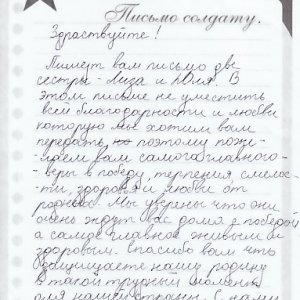 Письмо солдату.
Здраствуйте!
Пишут вам письмо две
сестры - Лиза и Юля. В
этом письме не уместить
всей благодарности и любви
которую мы хотим вам
передать, но поэтому поже-
лаем вам самого главного -
- веры в победу, терпения смелос-
ти, здоровья и любви от
родных. Мы уверны что они
очень ждут вас дома с победой
а самое главное живым и
здоровым. Спасибо вам что
защищаете нашу родину
в такой трудный момент
для нашей страны. С нами